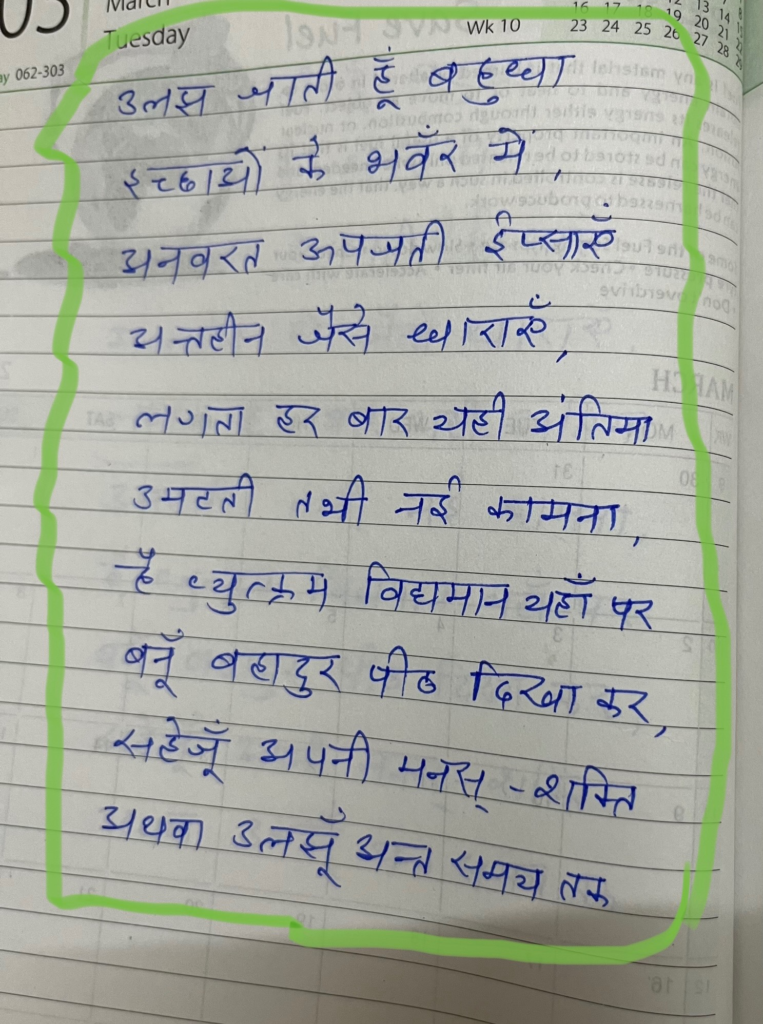 March
Tuesday
Wk 10
16 17 18 19 20 21
23 24 25 26 27 28
062-303
उलझ जाती हूँ बहुधा
इच्छाओं के भवँर में,
अनवरत ऊपजती ईप्साएँ
अन्तहीन जैसे धाराएँ,
लगता हर बार यही अंतिमा
उमटती तभी नई कामना,
है व्युत्क्रम विद्यमान यहाँ पर
बनूँ बहादुर पीठ दिखा कर,
सहेजूँ अपनी मनस्-शक्ति
अथवा उलझूँ अन्त समय तक